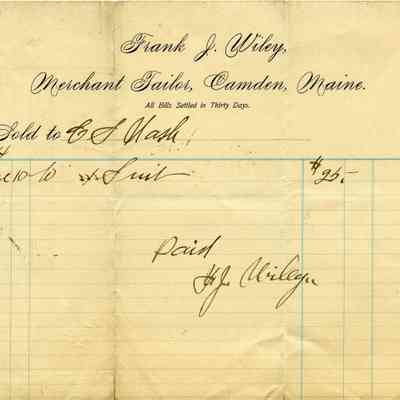 Frank J. Wiley,
Merchant Tailor, Camden, Maine.
All Bills Settled in Thirty Days.
Sold to E S Nash
Suit $25.-
Paid
F J. Wiley